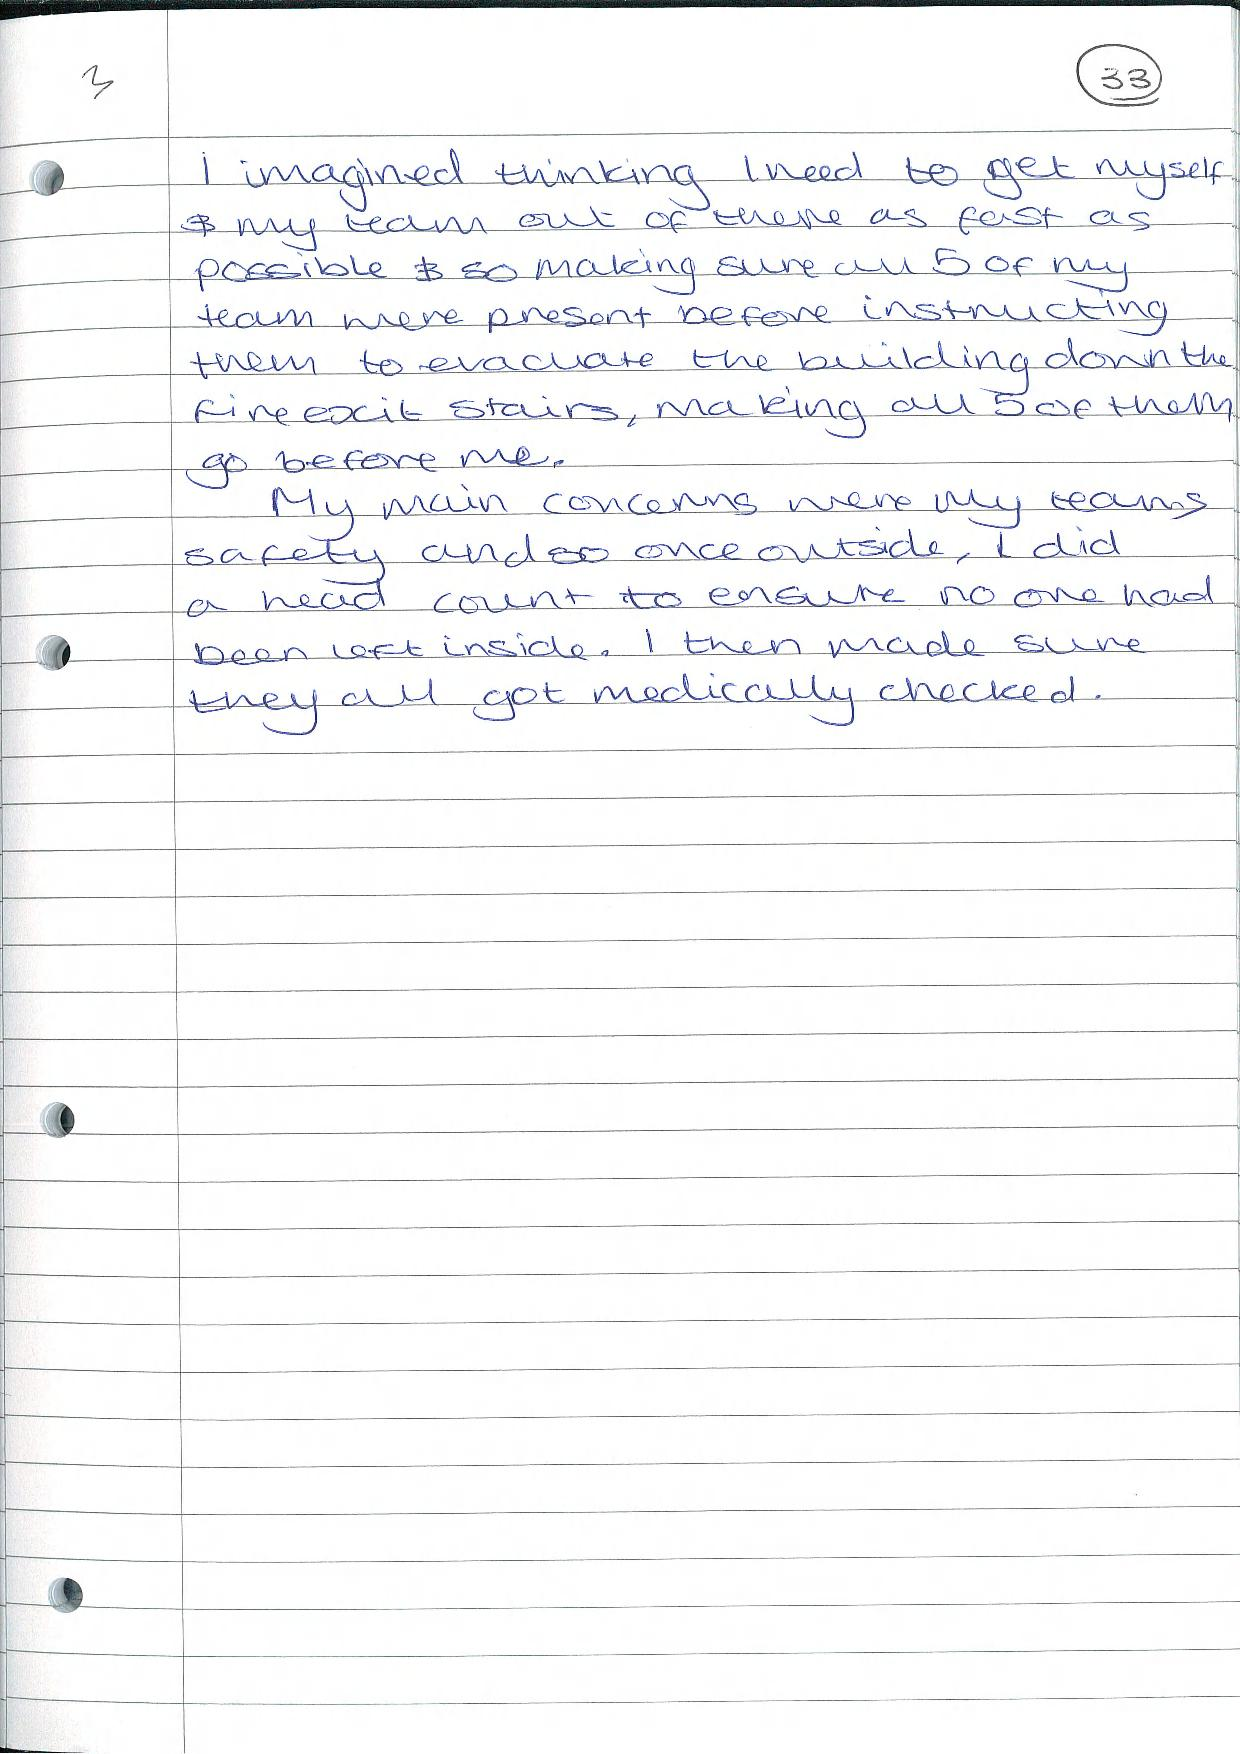 3
33
I imagined thinking I need to get myself
& my team out of there as fast as
possible & so making sure all 5 of my
team were present before instructing
them to evacuate the building down the
fire exit stairs, making all 5 of them
go before me.
My main concerns were my teams
safety and so once outside, I did
a head count to ensure no one had
been left inside. I then made sure
they all got medically checked.